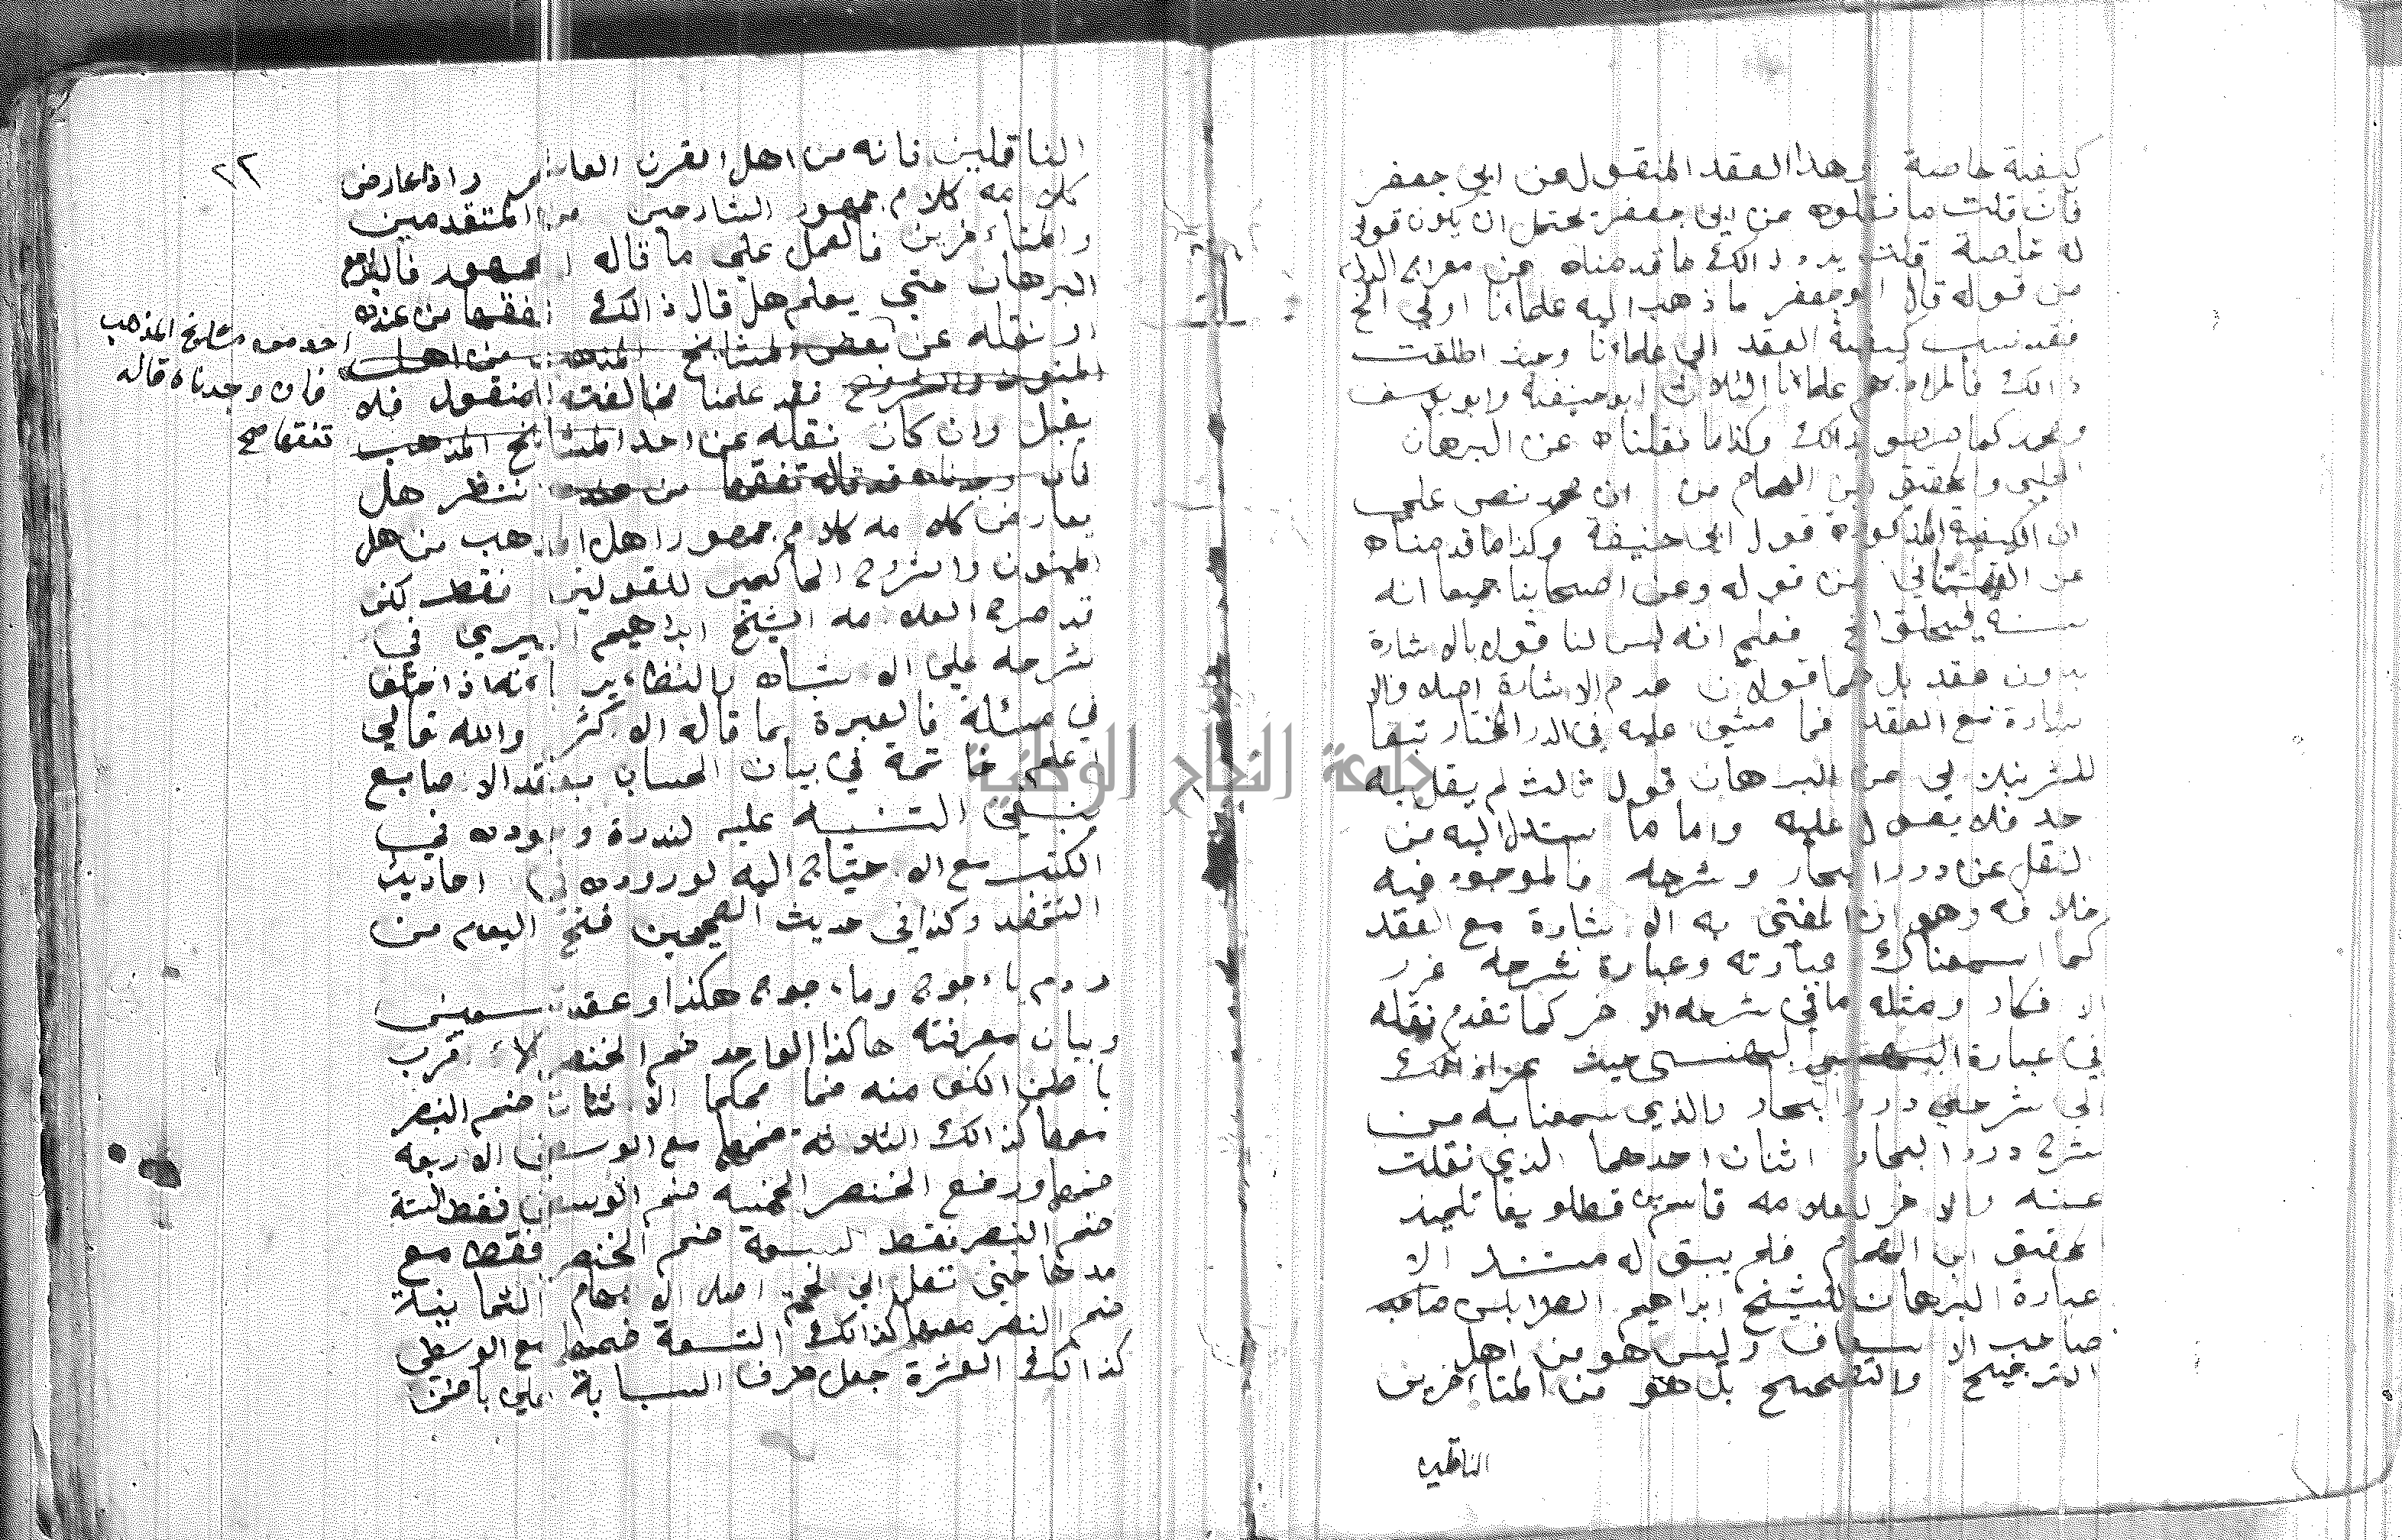 كيفية خاصة وهذا العقد المنقول عن ابي جعفر
فان قلت ما نقلوه عن ابي جعفر يحتمل ان يكون قولا
له خاصة قلت يرد ذالك ما قدمناه عن معراج
من قوله قال ابو جعفر ما ذهب اليه علماءنا اولي الخ
فقد نسب كيفية العقد الي علماءنا وحيث اطلقت
ذالك فالمراد بهم علماءنا الثلاث ابو حنيفة وابو يوسف
ومحمد كما هو ذالك وكذا ما نقلناه عن البرهان
الحلبي والمحقق ابن الهمام من ان محمد نص علي
ان الكيفية المذكورة قول ابي حنيفة وكذا ما قدمناه
عن القهستاني من قوله وعن اصحابنا جميعا انه
سنة فيحلق الخ فعلم انه ليس لنا قول بالاشارة
بدون عقد بل هما قولان عدم الاشارة اصلا والا
شارة مع العقد فما مشي عليه في الدر المختار تبعا
للشرنبلالي عن البرهان قول ثالث لم يقل به
احد فلا يعول عليه واما ما ستدل اليه من
النقل عن درر البحار وشرحه فالموجود فيه
خلافه وهو ان المفتى به الاشارة مع العقد
كما اسمعناك عبارته وعبارة شرحه غرر
الافكار ومثله ما في شرحه الاخر كما تقدم نقله
في عبارة البهنسي حيث عزا ذالك
الي شرحي درر البحار والذي سمعنا به من
شرح درر البحار اثنان احدهما الذي نقلت
عنه والاخر للعلامه قاسم بن قطلوبغا تلميذ
المحقق ابن الهمام فلم يبق له مستند الا
عبارة البرهان للشيخ ابراهيم الطرابلسي صاحب
صاحب الاسعاف وليس هو من اهل
الترجيح والتصحيح بل هو من المتأخرين
الناقلين
٢٢
الناقلين فانه من اهل القرن العاشر واذا عارض
كلامه كلام جمهور الشارحين من المتقدمين
والمتأخرين فالعمل علي ما قاله الجمهور فاليراجع
البرهان حتي يعلم هل قال ذالك تفقها من عنده
او نقله عن بعض المشايخ المذهب من اهل
المتون والشروح فقد علمنا مخالفته المنقول فلا
يقبل وان كان نقله عن احد المشايخ المذهب
فان وجدناه قد قاله تفقها من عنده ننظر هل
يعارض كلامه كلام جمهور اهل المذهب من اهل
المتون والشروح الحاكيين للقولين فقط كيف
قد صرح العلامه الشيخ ابراهيم البيري في
شرحه علي الاشباه والنظاير بانه اذا اختلفا
في مسئلة فالعبرة بما قاله الاكثر والله تعالي
اعلم خاتمة في بيان الحساب بعقد الاصابع
ينبغي التنبيه عليه لندرة وجوده في
الكتب مع الاحتياج اليه لوروده في احاديث
التشهد وكذا في حديث الصحيحين فتح اليوم من
ردم ياءجوج وماءجوج هكذا وعقد تسعين
وبيان معرفته هاكذا الواحد ضم الخنصر لاقرب
باطن الكف منه ضما محكما الاثنان ضم البنصر
معها كذالك الثلاثة ضمها مع الوسطى الاربعة
ضمها ورفع الخنصر الخمسة ضم الوسطى فقط الستة
ضم البنصر فقط السبعة ضم الخنصر فقط مع
مدها حتي تصل الي لحمة اصل الابهام الثمانية
ضم البنصر معها كذالك التسعة ضمها مع الوسطي
كذالك العشرة جعل طرف السبابة علي باطن
احد من مشايخ المذهب
فان وجدناه قاله
تفقها صح
جامعة النجاح الوطنية